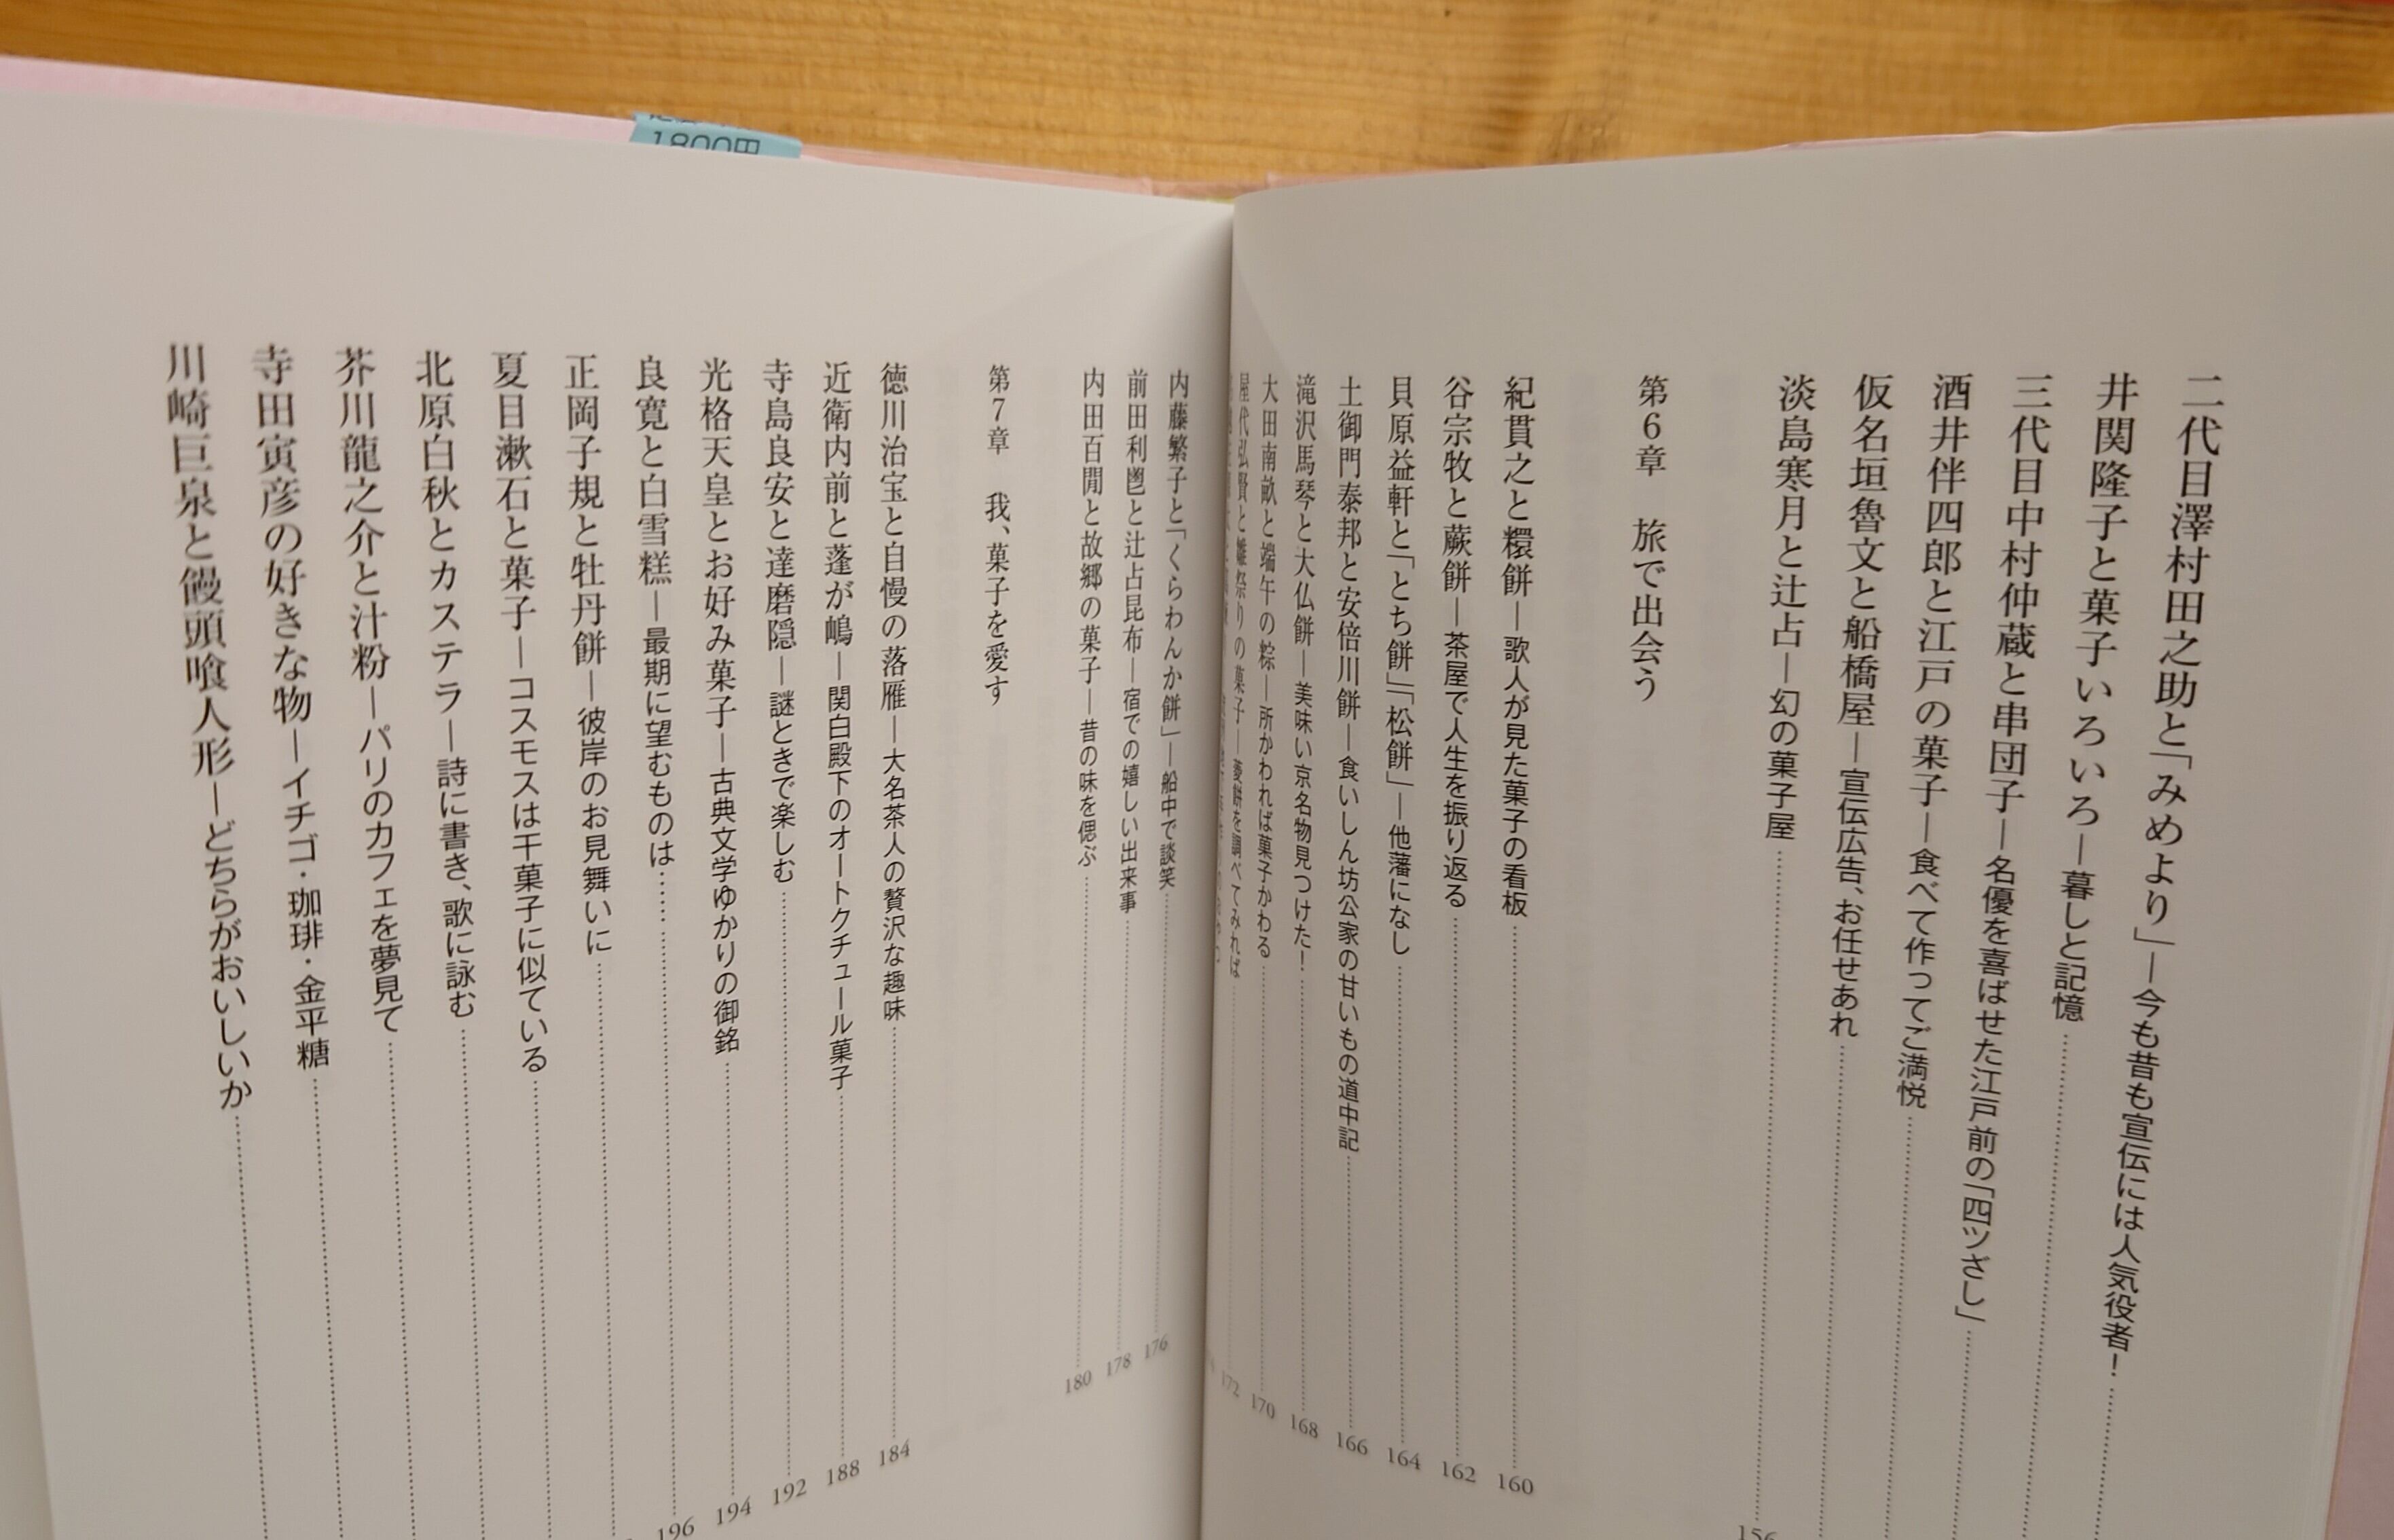 二代目澤村田之助と「みめより」―今も昔も宣伝には人気役者！
井関隆子と菓子いろいろ―暮しと記憶
三代目中村仲蔵と串団子―名優を喜ばせた江戸前の「四ツざし」
酒井伴四郎と江戸の菓子―食べて作ってご満悦
仮名垣魯文と船橋屋―宣伝広告、お任せあれ
淡島寒月と辻占―幻の菓子屋 156
第6章 旅で出会う
紀貫之と糫餅―歌人が見た菓子の看板 160
谷宗牧と蕨餅―茶屋で人生を振り返る 162
貝原益軒と「とち餅」「松餅」―他藩になし 164
土御門泰邦と安倍川餅―食いしん坊公家の甘いもの道中記 166
滝沢馬琴と大仏餅―美味い京名物見つけた！ 168
大田南畝と端午の粽―所かわれば菓子かわる 170
屋代弘賢と雛祭りの菓子―菱餅を調べてみれば 172
内藤繁子と「くらわんか餅」―船中で談笑 176
前田利鬯と辻占昆布―宿での嬉しい出来事 178
内田百閒と故郷の菓子―昔の味を偲ぶ 180
第7章 我、菓子を愛す
徳川治宝と自慢の落雁―大名茶人の贅沢な趣味 184
近衛内前と蓬が嶋―関白殿下のオートクチュール菓子 188
寺島良安と達磨隠―謎ときで楽しむ 192
光格天皇とお好み菓子―古典文学ゆかりの御銘 194
良寛と白雪糕―最期に望むものは…… 196
正岡子規と牡丹餅―彼岸のお見舞いに
夏目漱石と菓子―コスモスは干菓子に似ている
北原白秋とカステラ―詩に書き、歌に詠む
芥川龍之介と汁粉―パリのカフェを夢見て
寺田寅彦の好きな物―イチゴ・珈琲・金平糖
川崎巨泉と饅頭喰人形―どちらがおいしいか
1800円